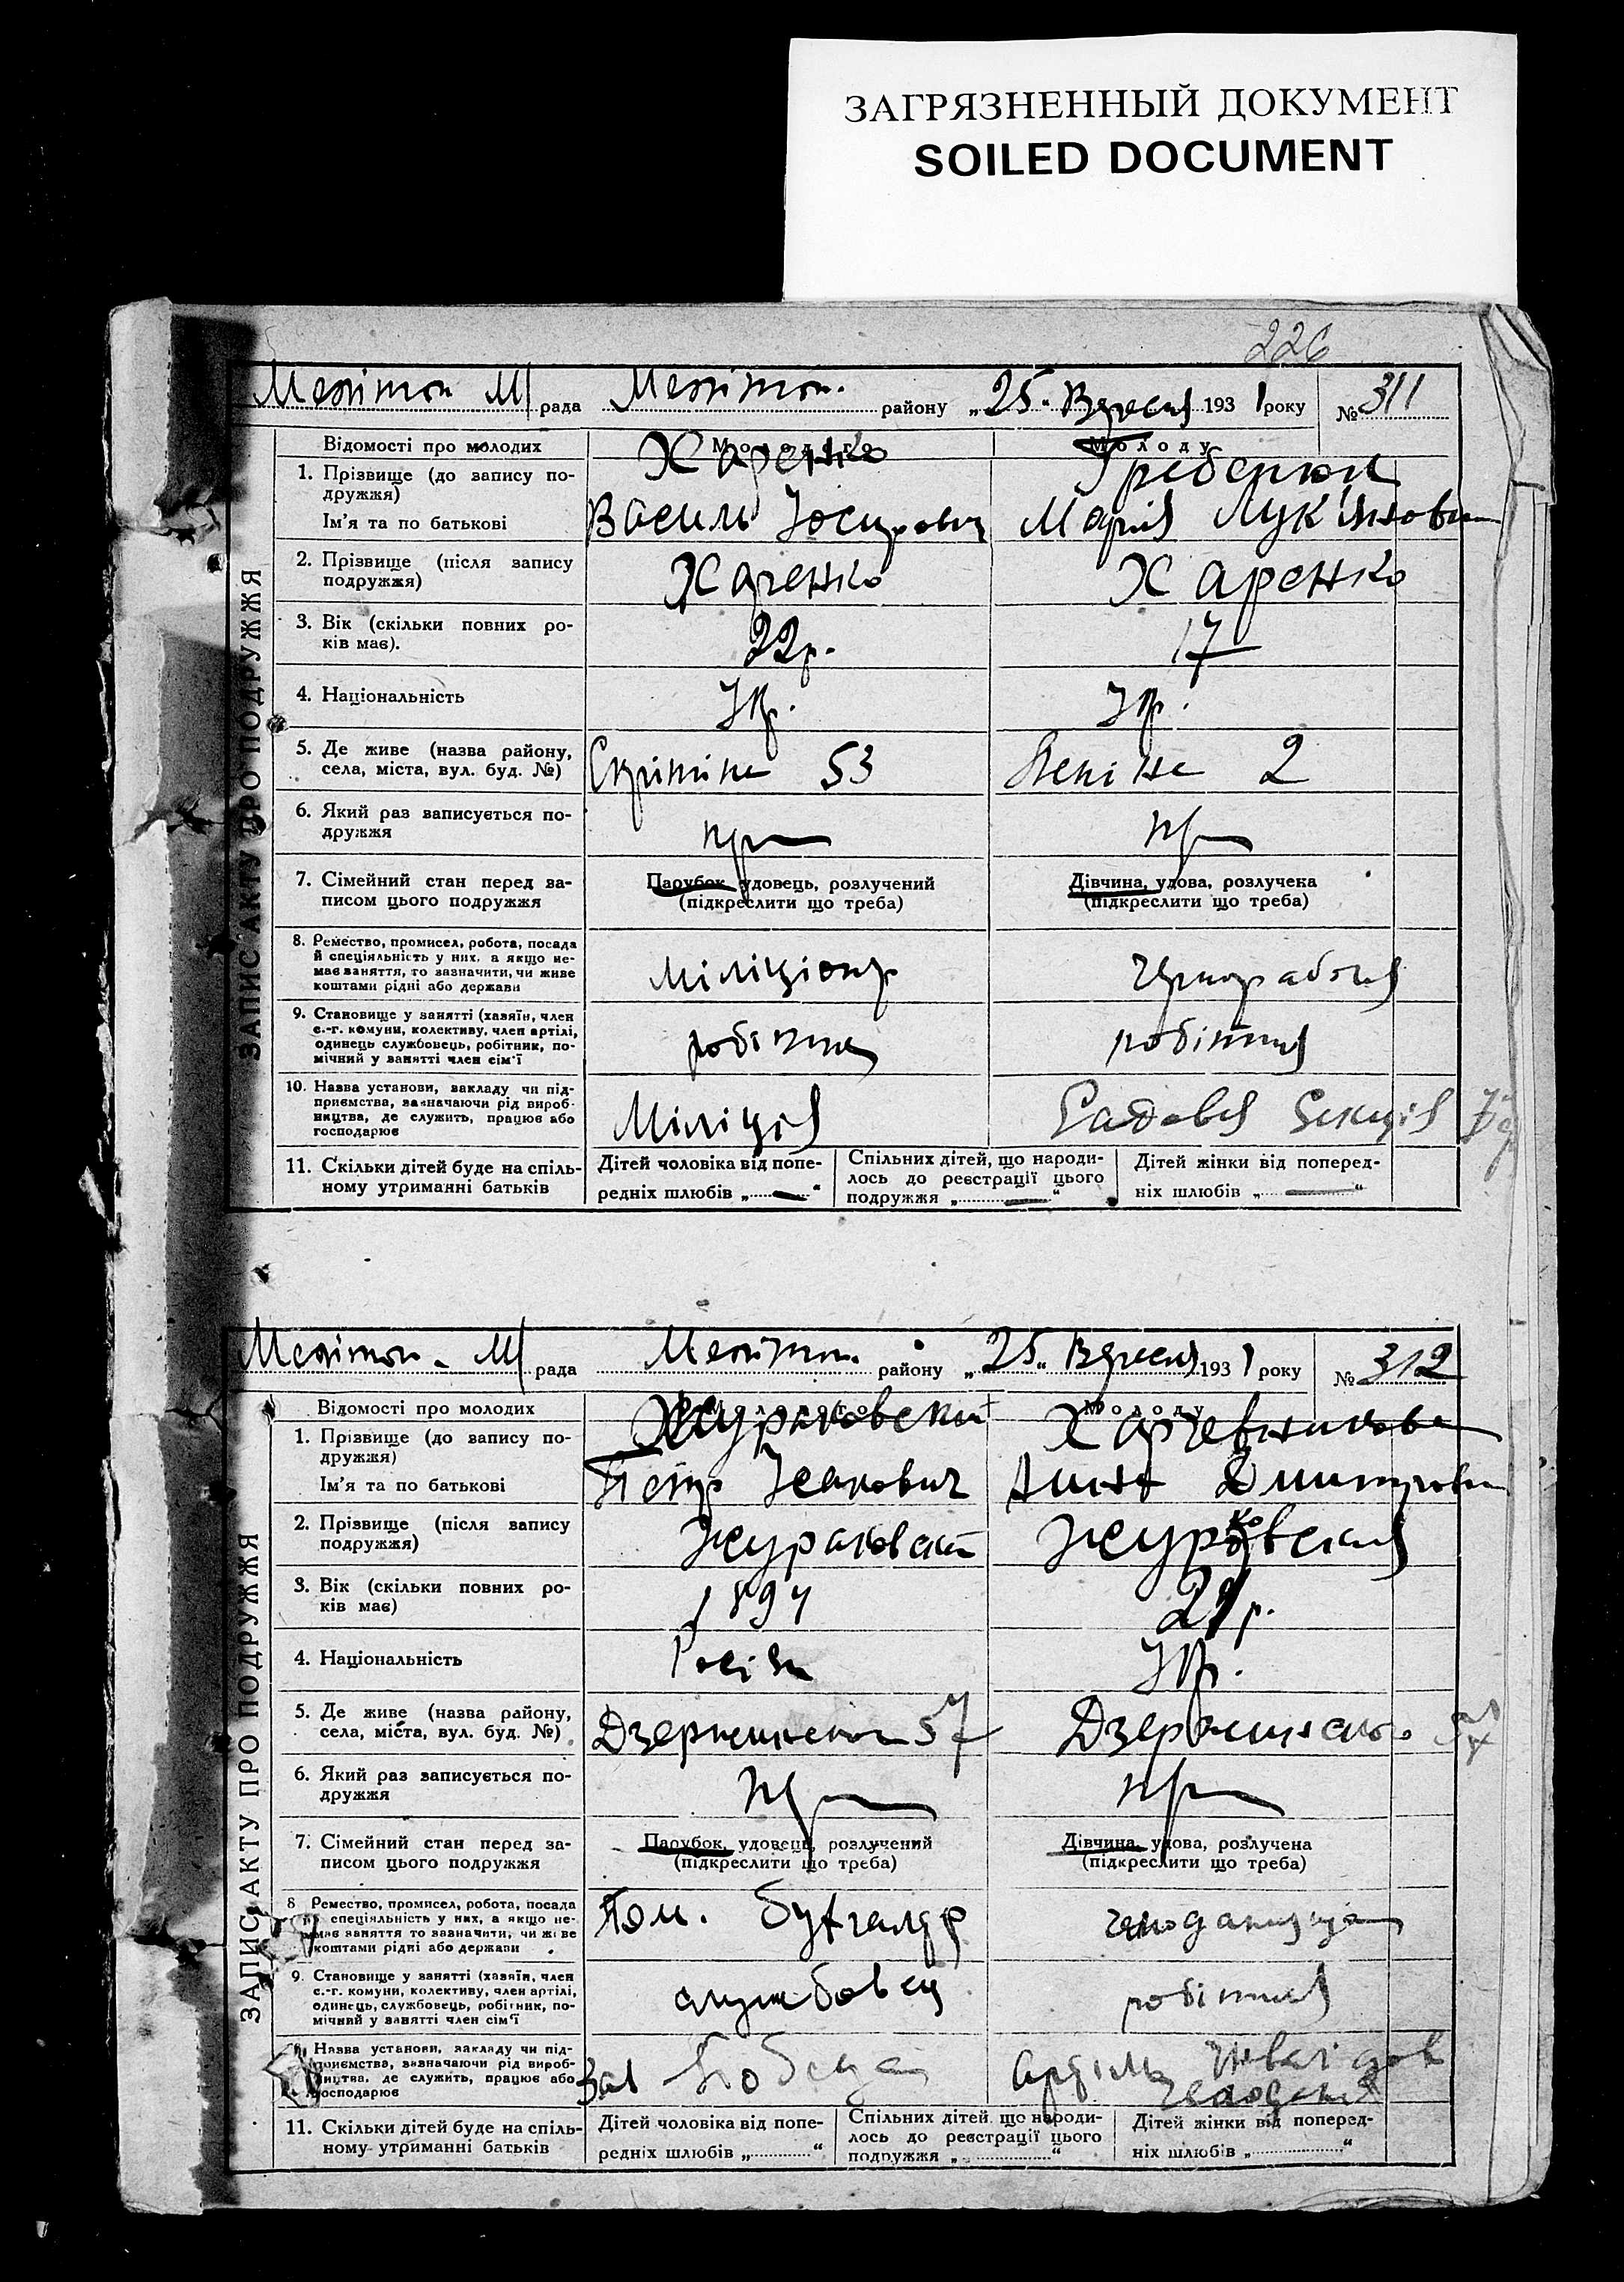 ЗАГРЯЗНЕННЫЙ ДОКУМЕНТ
SOILED DOCUMENT
226
ЗАПИС АКТУ ПРО ПОДРУЖЖЯ
Мелітоп М/рада Мелітоп. району „25" Вересня 1931 року № 311
Відомості про молодих Молодого Молоду
1. Прізвище (до запису по-
дружжя)
Харенко
Ім'я та по батькові Василь Марія Лук'яновна
2. Прізвище (після запису
подружжя)
Харенко Харенко
3. Вік (скільки повних ро-
ків має).
22р. 17
4. Національність Укр. Укр.
5. Де живе (назва району,
села, міста, вул. буд. №)
53 Леніна 2
6. Який раз записується по-
дружжя
7. Сімейний стан перед за-
писом цього подружжя
Парубок, удовець, розлучений
(підкреслити що треба)
Дівчина, удова, розлучека
(підкреслити що треба)
8. Ремество, промисел, робота, посада
й спеціяльність у них, а якщо не-
має заняття, то зазначити, чи живе
коштами рідні або держави
Міліціонер чернорабоча
9. Становище у занятті (хазяїн, член
с.-г. комуни, колективу, член артілі,
одинець службовець, робітник, по-
мічний у занятті член сім'ї
робітник робітниця
10. Назва установи, закладу чи під-
приємства, зазначаючи рід вироб-
ництва, де служить, працює або
господарює
Міліція Садова секція
11. Скільки дітей буде на спіль-
ному утриманні батьків
Дітей чоловіка від попе-
редніх шлюбів „ — "
Спільних дітей, що народи-
лось до реєстрації цього
подружжя „ — "
Дітей жінки від поперед-
ніх шлюбів „ — "
ЗАПИС АКТУ ПРО ПОДРУЖЖЯ
Мелітоп. М/рада Мелітоп. району „25" Вересня 1931 року № 312
Відомості про молодих Молодого Молоду
1. Прізвище (до запису по-
дружжя)
Ім'я та по батькові Петр Ісакович Анна Дмитровна
2. Прізвище (після запису
подружжя)
Жураковский
3. Вік (скільки повних ро-
ків має)
4. Національність Росіян Укр.
5. Де живе (назва району,
села, міста, вул. буд. №)
Дзержинского 57 Дзержинского 57
6. Який раз записується по-
дружжя
7. Сімейний стан перед за-
писом цього подружжя
Парубок, удовець, розлучений
(підкреслити що треба)
Дівчина, удова, розлучена
(підкреслити що треба)
8 Ремество, промисел, робота, посада
й спеціяльність у них, а якщо не-
має заняття то зазначити, чи живе
коштами рідні або держави
Пом. бухгалтер
9. Становище у занятті (хазяїн, член
с.-г. комуни, колективу, член артілі,
одинець, службовець, робітник, по-
мічний у занятті член сім'ї
службовец робітниця
Назва установи, закладу чи під-
приємства, зазначаючи рід вироб-
ництва, де служить, працює або
господарює
Зав Победа Артіль
11. Скільки дітей буде на спіль-
ному утриманні батьків
Дітей чоловіка від попе-
редніх шлюбів „ "
Спільних дітей, що народи-
лось до реєстрації цього
подружжя „ "
Дітей жінки від поперед-
ніх шлюбів „ "